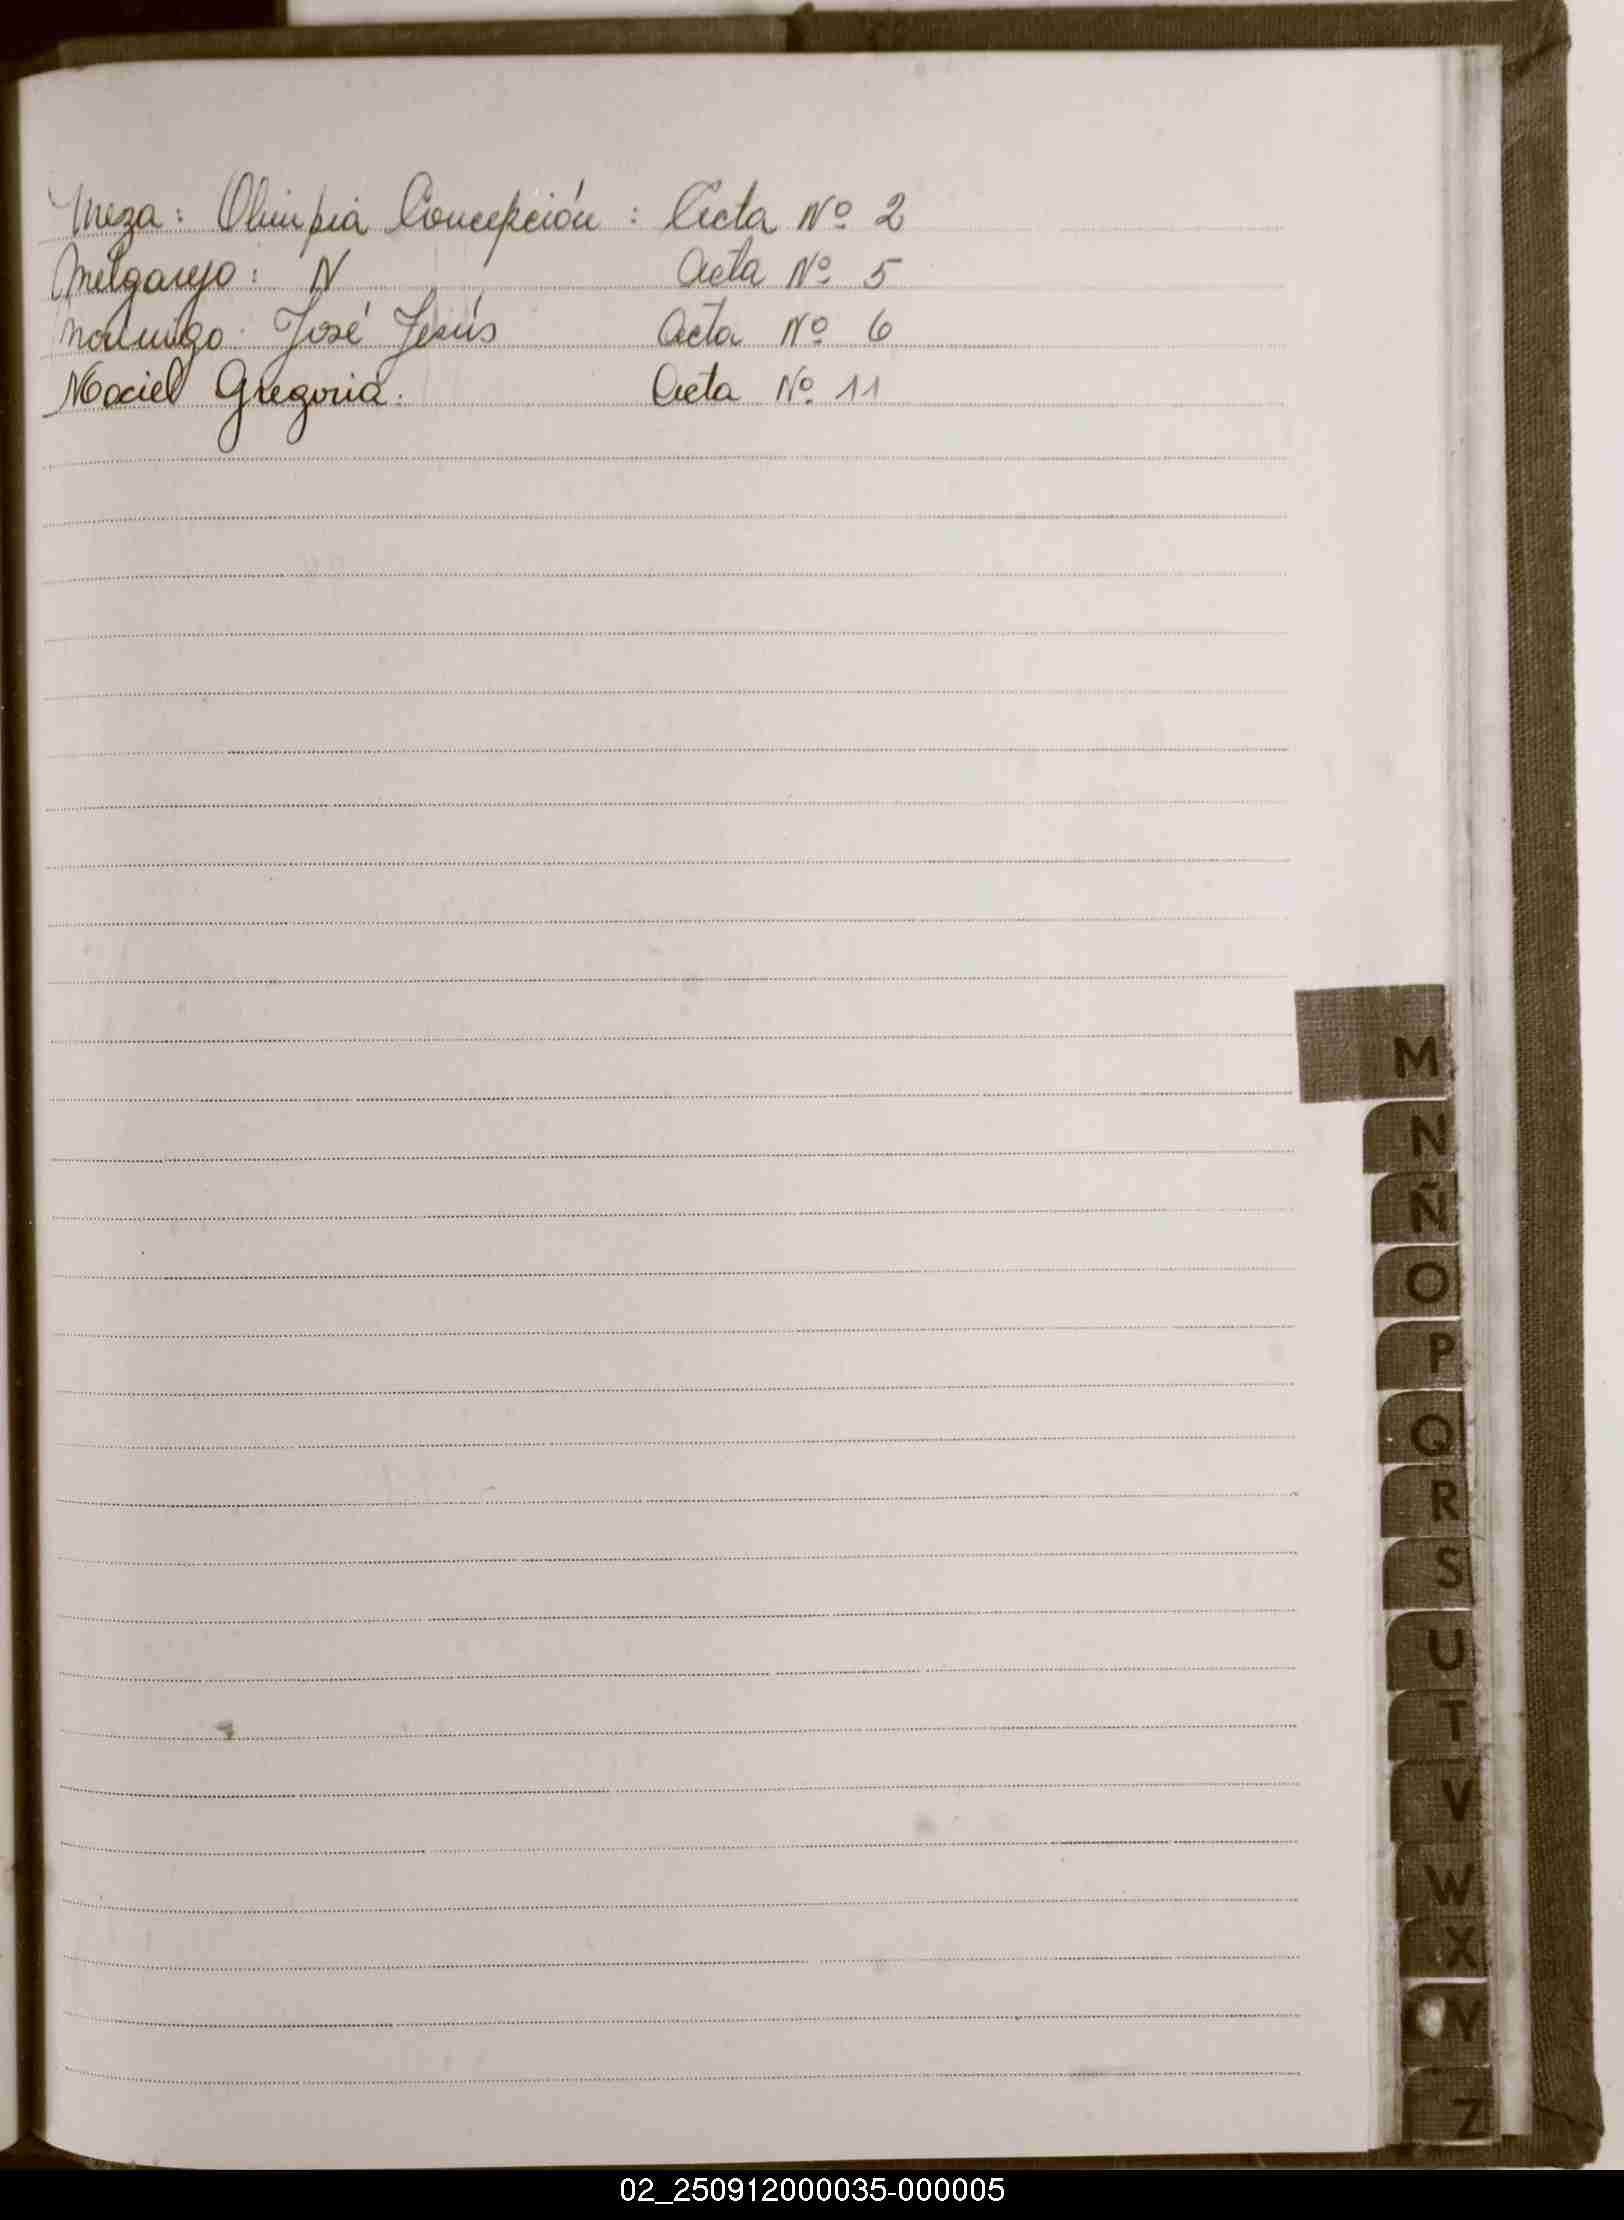 Meza: Olimpia Concepción: Acta Nº 2
Melgarejo: N Acta Nº 5
José Jesús Acta Nº 6
Maciel Gregoria. Acta Nº 11
M
N
Ñ
O
P
Q
R
S
U
T
V
W
X
Y
Z
02_250912000035-000005